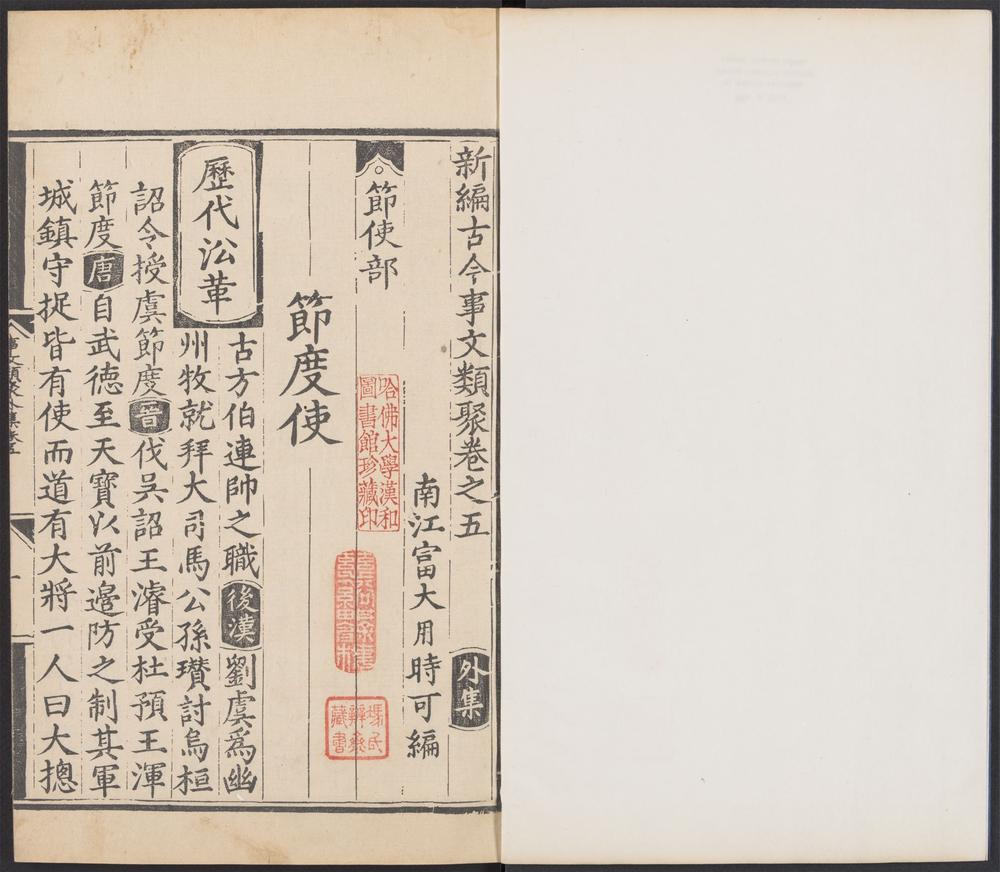 新編古今事文類聚卷之五 外集
南江富大用時可編
節使部
哈佛大學漢和
圖書館珍藏印
節度使
歷代㳂革
古方伯連帥之職後漢劉虞爲幽
州牧就拜大司馬公孫瓚討烏桓
詔令授虞節度晉伐吳詔王濬受杜預王渾
節度唐自武德至天寶以前邊防之制其軍
城鎮守捉皆有使而道有大將一人曰大揔